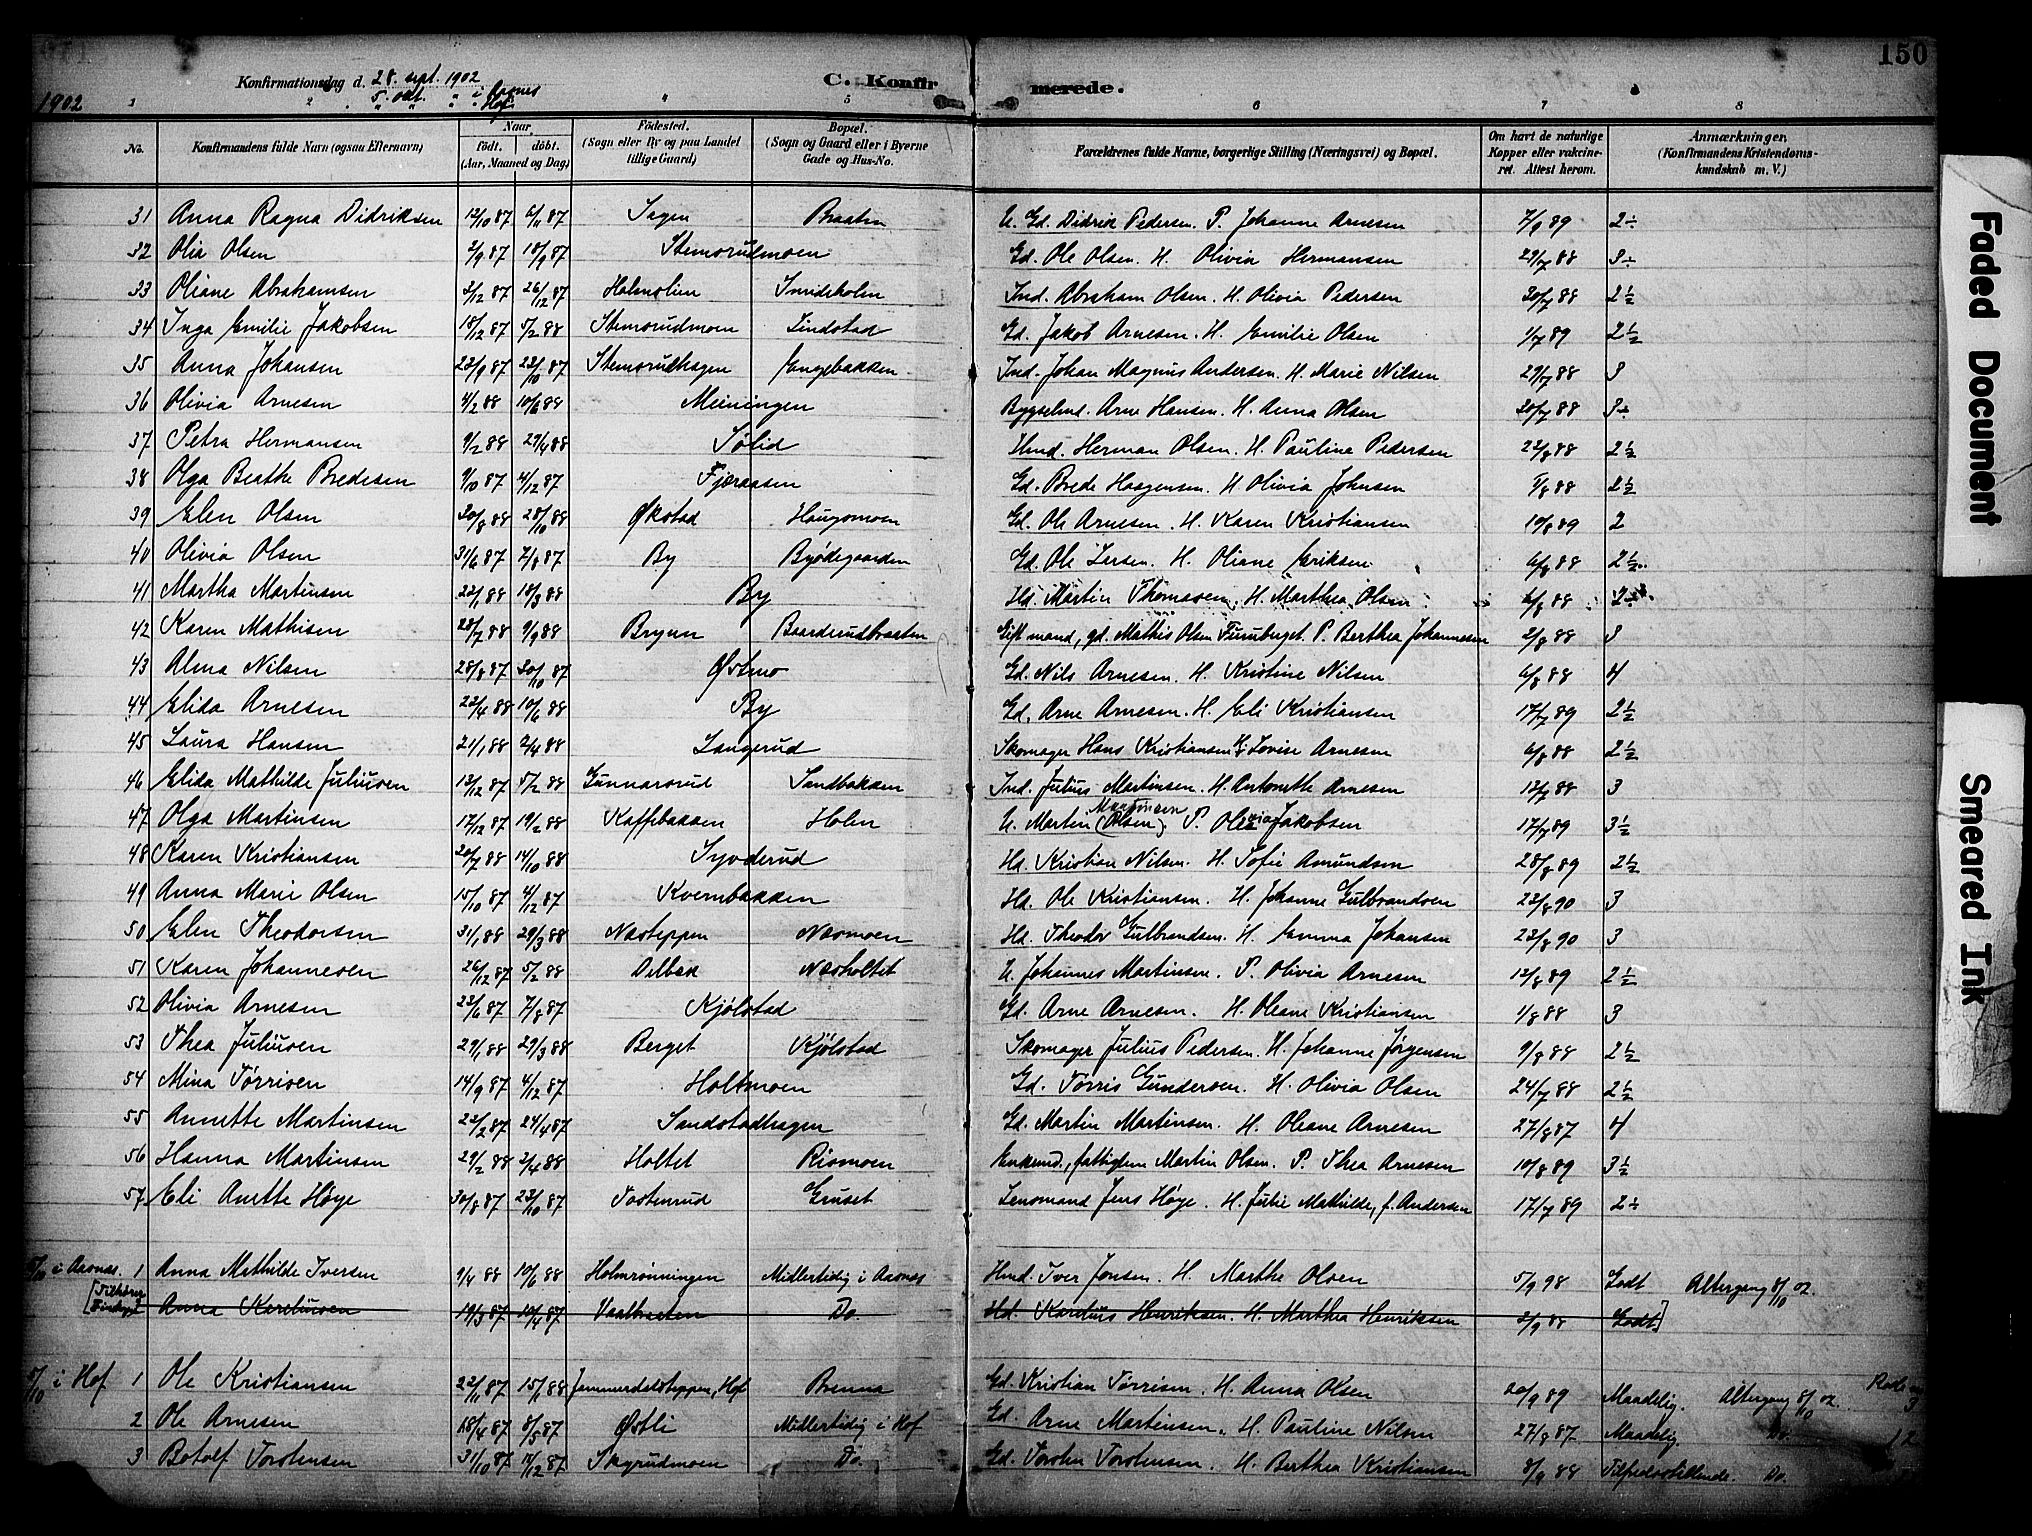 150
1902
Konfirmationsdag d. 28. sept. 1902 i Aasnes
" 5. okt. " i Hof
C. Konfirmerede.
1 2 4 5 6 7 8
No. Konfirmandens fulde Navn (ogsaa Efternavn) Naar født. døbt. (Aar, Maaned og Dag) Fødested. (Sogn eller By og paa Landet tillige Gaard) Bopæl. (Sogn og Gaard eller i Byerne Gade og Hus-No. Forældrenes fulde Navne, borgerlige Stilling (Næringsvei) og Bopæl. Om havt de naturlige Kopper eller vakcineret. Attest herom. Anmærkninger, (Konfirmandens Kristendomskundskab m. V.)
31 Anna Ragna Didriksen 12/10 87 6/11 87 Sagen Braaten U. Gd. Didrik Pedersen. P. Johanne Arnesen 7/9 89 2÷
32 Olia Olsen 2/9 87 18/9 87 Stemsrudmoen Gd. Ole Olsen. H. Olivia Hermansen 29/7 88 3÷
33 Oliane Abrahamsen 2/12 87 26/12 87 Holmolien Inderholen Ind. Abraham Olsen. H. Olivia Pedersen 30/7 88 2½
34 Inga Emilie Jakobsen 18/12 87 5/2 88 Stemsrudmoen Lindstad Gd. Jakob Arnesen. H. Emilie Olsen 1/7 89 2½
35 Anna Johansen 22/9 87 23/10 87 Stemsrudhagen Engebakken Ind. Johan Magnus Andersen. H. Marie Nilsen 29/7 88 3
36 Olivia Arnesen 4/2 88 10/6 88 Meiningen Bygselmd. Arne Hansen. H. Anna Olsen 30/7 88 3÷
37 Petra Hermansen 9/2 88 29/4 88 Sølid Hmd. Herman Olsen. H. Pauline Pedersen 22/8 88 2½
38 Olga Beathe Bredesen 9/10 87 4/12 87 Fjæraasen Gd. Brede Haagensen. H. Olivia Johnsen 1/8 88 2½
39 Elen Olsen 30/8 88 28/10 88 Økstad Haugsmoen Gd. Ole Arnesen. H. Karen Kristiansen 10/8 89 2
40 Olivia Olsen 31/6 87 7/8 87 By Byødegaarden Gd. Ole Larsen. H. Oliane Eriksen 6/8 88 2½
41 Martha Martinsen 22/1 88 18/3 88 By Hd. Martin Thomasen. H. Marthea Olsen 6/8 88 2÷
42 Karen Mathisen 28/7 88 9/9 88 Brynn Baarderudbraaten Gift mand, gd. Mathis Olsen Furuberget. P. Berthea Johannesen 2/8 88 3
43 Alma Nilsen 28/8 87 30/10 87 Østmo Gd. Nils Arnesen. H. Kristine Nilsen 6/8 88 4
44 Elida Arnesen 22/4 88 10/6 88 By Gd. Arne Arnesen. H. Eli Kristiansen 17/7 89 2½
45 Laura Hansen 21/1 88 2/4 88 Langerud Skomager Hans Kristiansen H. Lovise Arnesen 6/8 88 2½
46 Elida Mathilde Juliusen 12/12 87 5/2 88 Gunnarsrud Sandbakken Ind. Julius Martinsen. H. Antonette Arnesen 12/7 88 3
47 Olga Martinsen 17/12 87 19/2 88 Kaffebakken Holen U. Martin Martinsen (Olsen). P. Olivia Jakobsen 17/7 89 3½
48 Karen Kristiansen 20/7 88 14/10 88 Syverud Hd. Kristian Nilsen. H. Sofie Amundsen 28/8 89 2½
49 Anna Marie Olsen 15/10 87 4/12 87 Kvernbakken Hd. Ole Kristiansen. H. Johanne Gulbrandsen 22/8 90 3
50 Elen Theodorsen 31/1 88 29/3 88 Næsteppen Næsmoen Hd. Theodor Gulbrandsen. H. Emma Johansen 22/8 90 3
51 Karen Johannesen 26/12 87 5/2 88 Delbæk Næsholtet U. Johannes Martinsen. P. Olivia Arnesen 12/8 89 2½
52 Olivia Arnesen 23/6 87 7/8 87 Kjølstad Gd. Arne Arnesen. H. Oleane Kristiansen 1/8 88 3
53 Thea Juliusen 29/1 88 29/3 88 Berget Kjølstad Skomager Julius Pedersen. H. Johanne Jørgensen 9/8 88 2½
54 Mina Tørrisen 14/9 87 4/12 87 Holtmoen Gd. Tørris Gundersen. H. Olivia Olsen 24/7 88 2½
55 Annette Martinsen 22/2 87 24/4 87 Sandstadhagen Gd. Martin Martinsen. H. Oleane Arnesen 27/8 87 4
56 Hanna Martinsen 29/2 88 2/4 88 Holtet Rismoen Enkemd., fattiglem Martin Olsen. P. Thea Arnesen 10/8 89 3½
57 Eli Anette Høye 30/8 87 23/10 87 Tostenrud Gruset Lensmand Jens Høye. H. Julie Mathilde, f. Andersen 17/7 89 2÷
5/10 i Aasnæs. 1 Anna Mathilde Iversen 9/4 88 10/6 88 Holmrønningen Midlertidig i Aasnæs Hmd. Iver Jonsen. H. Marthe Olsen 5/9 98 Godt Altergang 8/10 02.
[Tilhører Findsgl Anna Kareliusen 19/3 87 10/4 87 Vaalbraaten Do. Hd. Karelius Henriksen. H. Marthea Henriksen 2/9 88 Godt]
5/10 i Hof 1 Ole Kristiansen 22/11 87 15/1 88 Jammerdalsteppen, Hof Brenna Gd. Kristian Tørrisen. H. Anna Olsen 20/9 89 Maadelig. Altergang 8/10 02. 3
2 Ole Arnesen 18/4 87 8/5 87 Østli Midlertidig i Hof Gd. Arne Martinsen. H. Pauline Nilsen 27/8 87 Maadelig. Do. 12
3 Botolf Torstensen 31/10 87 11/12 87 Skyrudmoen Do. Gd. Torsten Torstensen. H. Berthea Kristiansen 8/9 88 Tilfredsstillende. Do.
Faded Document
Smeared Ink